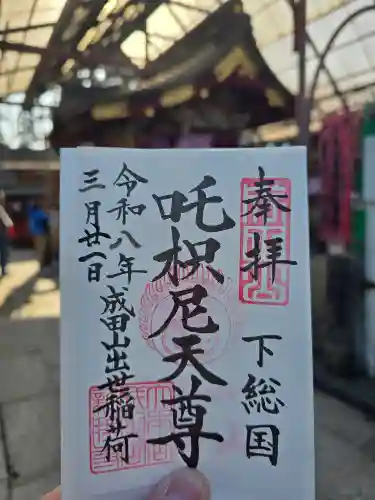 奉拝
下総国
吒枳尼天尊
令和八年
三月廿一日
成田山出世稲荷